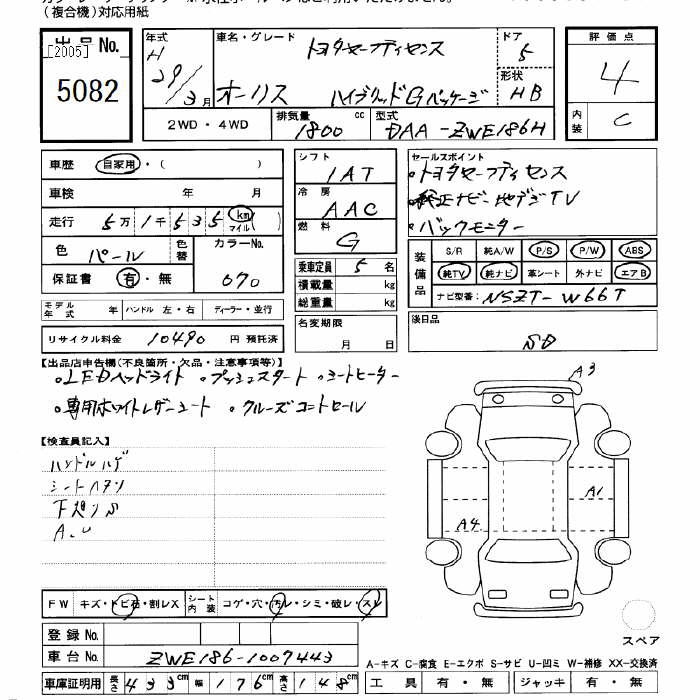 (複合機)対応用紙
出品No.
[2005]
5082
年式
H
29/3月
車名・グレード
トヨタセーフティセンス
オーリス ハイブリッドGパッケージ
ドア
5
形状
HB
2WD・4WD
排気量
1800
cc
型式
DAA-ZWE186H
評価点
4
内装
C
車歴
自家用・( )
車検 年 月
走行
5万1千535 km マイル( )
色
パール
色替
カラーNo.
070
保証書 有・無
モデル年式 年
ハンドル 左・右
ディーラー・並行
リサイクル料金 10490 円 預託済
シフト
IAT
冷房
AAC
燃料
G
乗車定員 5 名
積載量 kg
総重量 kg
名変期限
月 日
セールスポイント
・トヨタセーフティセンス
・純正ナビ 地デジTV
・バックモニター
装備品
S/R 純A/W P/S P/W ABS
純TV 純ナビ 革シート 外ナビ エアB
ナビ型番: NSZT-W66T
後日品
SD
【出品店申告欄(不良箇所・欠品・注意事項等)】
・LEDヘッドライト ・プッシュスタート ・シートヒーター
・専用ホワイトレザーシート ・クルーズコントロール
【検査員記入】
ハンドルハゲ
シートヘタリ
下廻りS
A.U
A3
A1
A4
スペア
FW キズ・トビ石・割レX
シート内装 コゲ・穴・汚レ・シミ・破レ・スレ
登録No.
車台No. ZWE186-1007443
車庫証明用 長さ 433cm 幅 176cm 高さ 148cm
A-キズ C-腐食 E-エクボ S-サビ U-凹ミ W-補修 XX-交換済
工具 有・無 ジャッキ 有・無